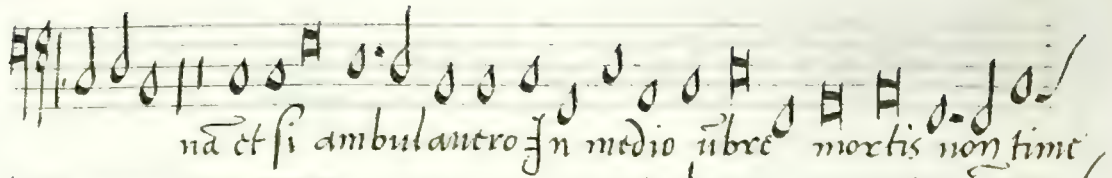 nā et si ambulauero In medio ūbre mortis non time